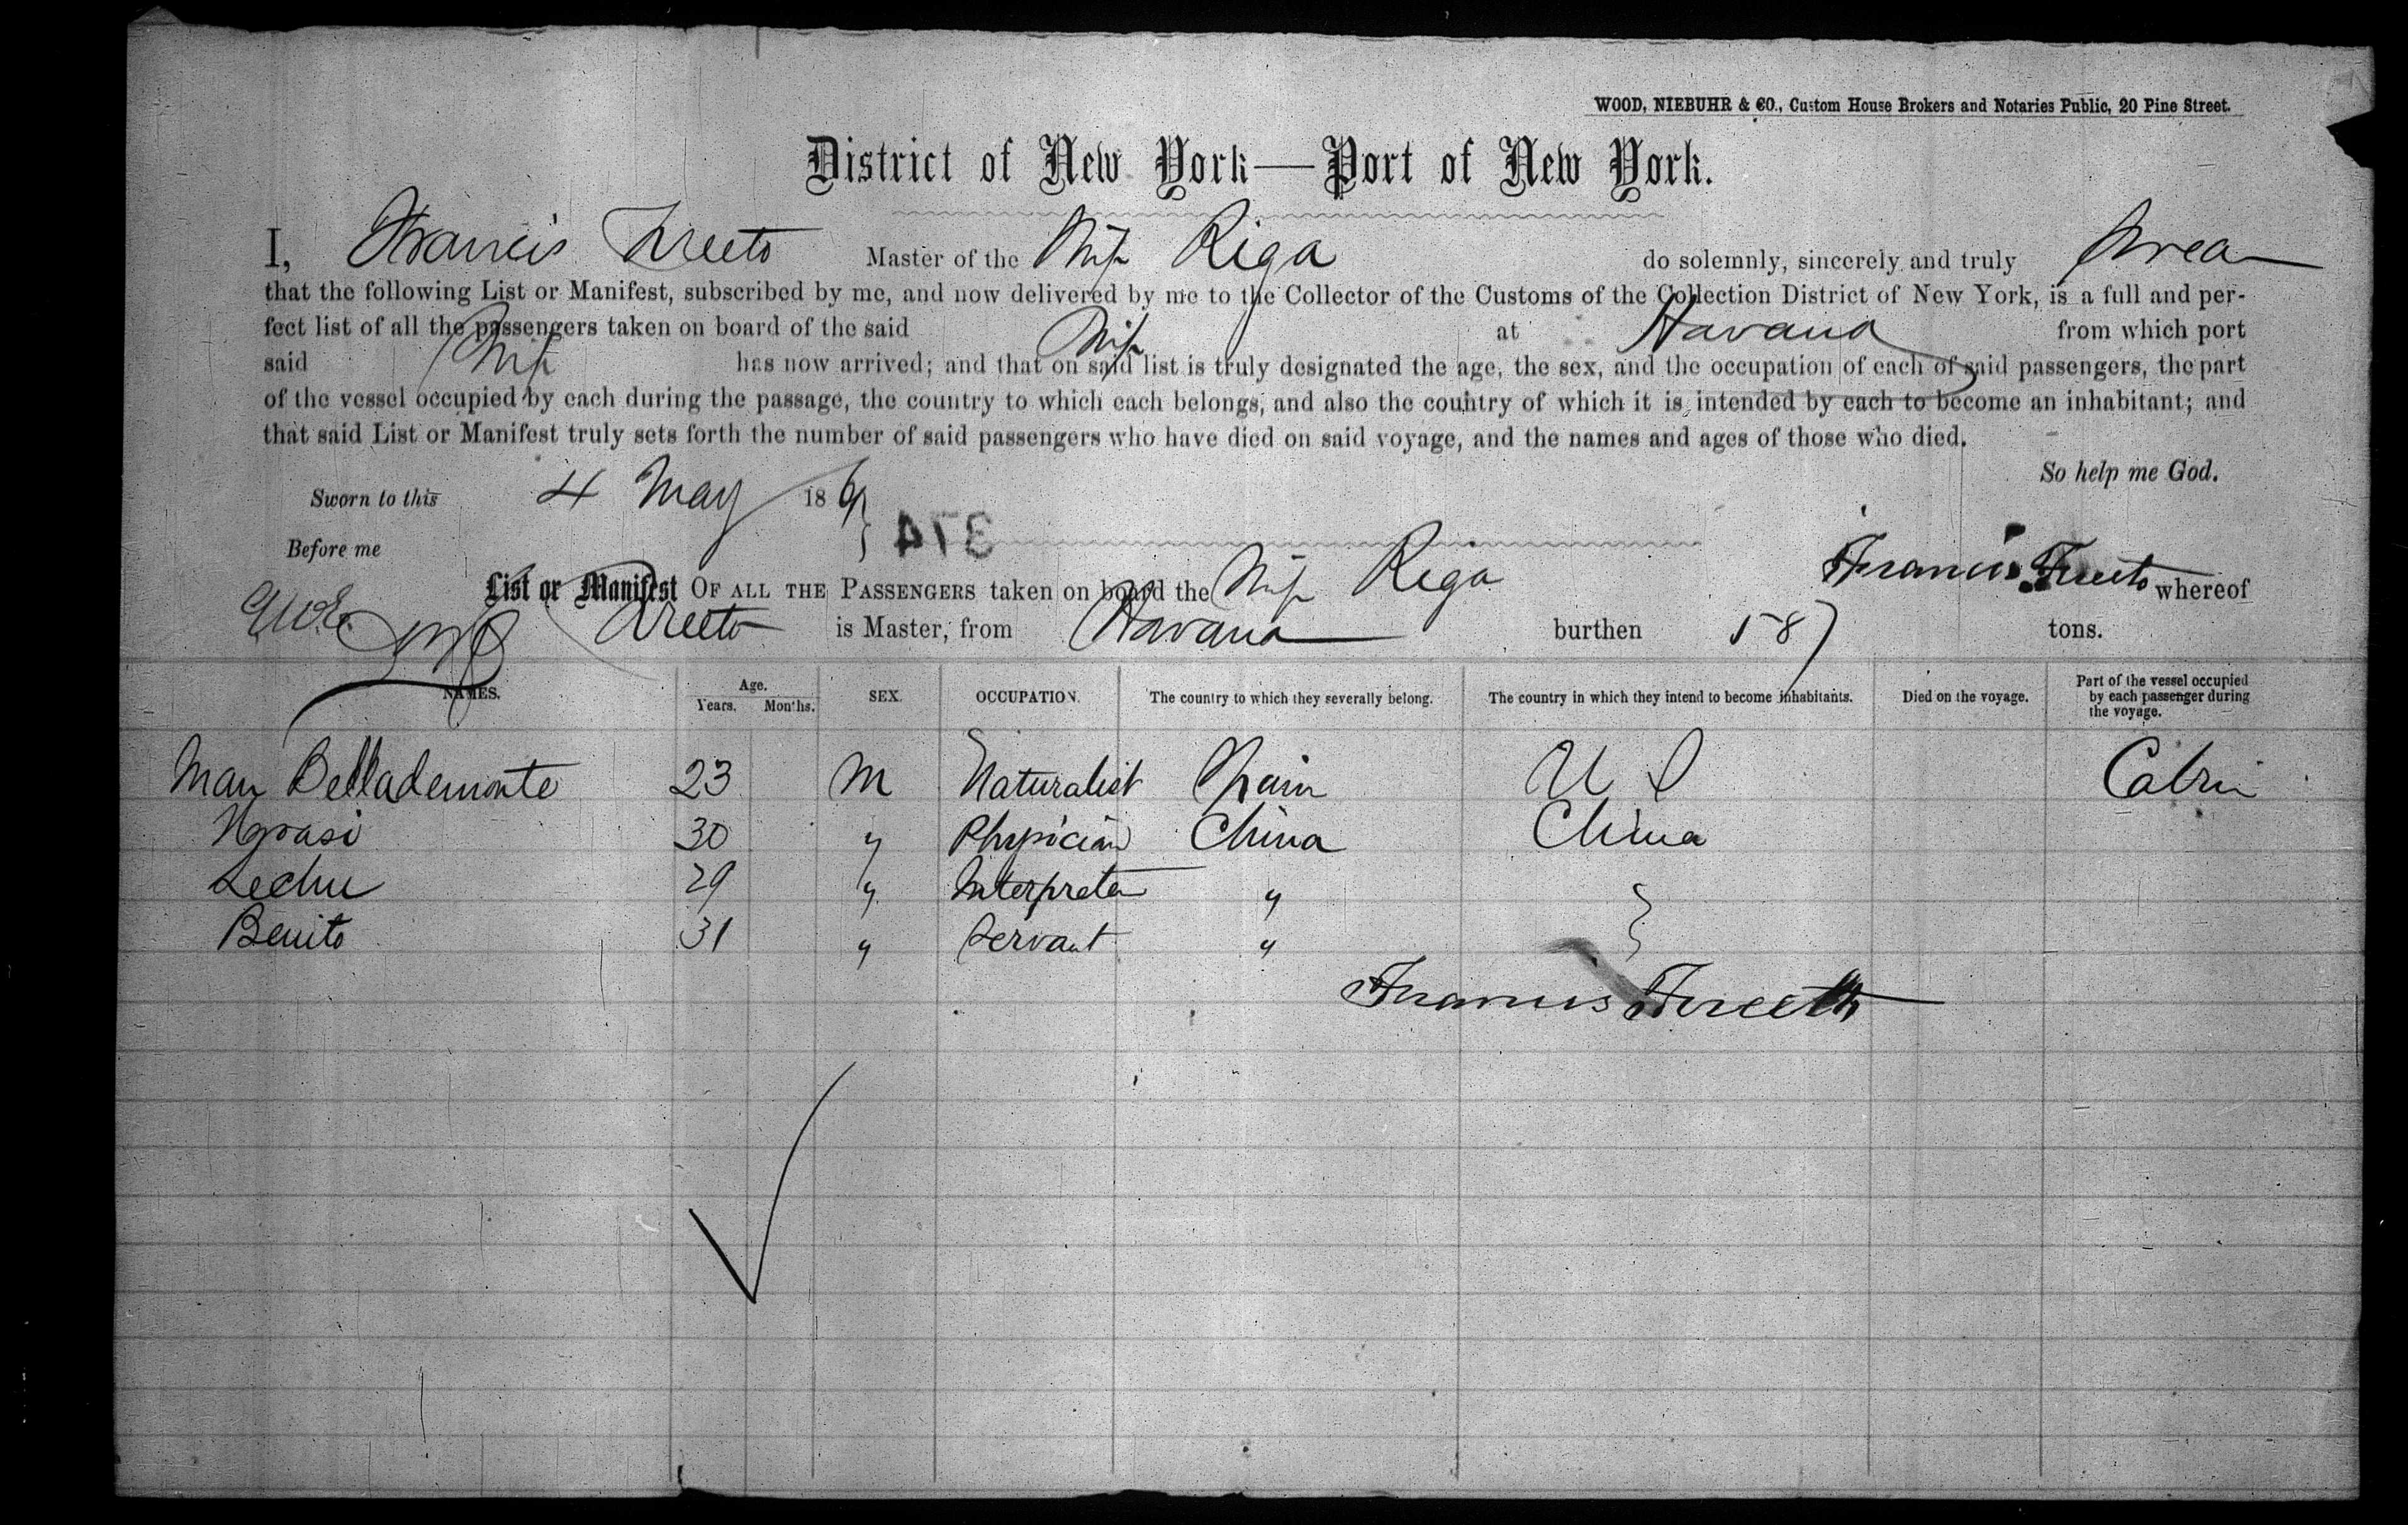 WOOD, NIEBUHR & CO., Custom House Brokers and Notaries Public, 20 Pine Street.
District of New York—Port of New York.
I, Francis Freeto Master of the Ship Riga do solemnly, sincerely and truly Swear
that the following List or Manifest, subscribed by me, and now delivered by me to the Collector of the Customs of the Collection District of New York, is a full and per-
fect list of all the passengers taken on board of the said Ship at Havana from which port
said Ship has now arrived; and that on said list is truly designated the age, the sex, and the occupation of each of said passengers, the part
of the vessel occupied by each during the passage, the country to which each belongs, and also the country of which it is intended by each to become an inhabitant; and
that said List or Manifest truly sets forth the number of said passengers who have died on said voyage, and the names and ages of those who died.
So help me God.
Sworn to this 4 May 186
374
Before me
Francis Freeto
List or Manifest OF ALL THE PASSENGERS taken on board the Ship Riga whereof
Freeto is Master, from Havana burthen 587 tons.
NAMES. Age. Years. Months. SEX. OCCUPATION. The country to which they severally belong. The country in which they intend to become inhabitants. Died on the voyage. Part of the vessel occupied by each passenger during the voyage.
Man Bellademonte 23 M Naturalist Spain U S Cabin
30 " Physician China China
Lechu 29 " Interpreter "
Benito 31 " Servant "
Francis Freeto